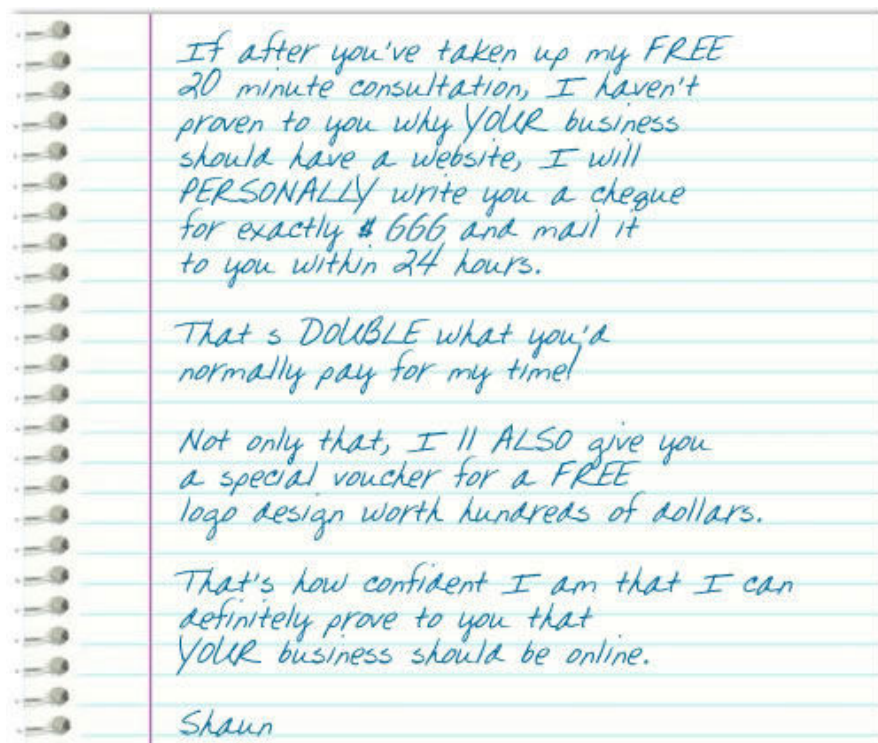 If after you've taken up my FREE
20 minute consultation, I haven't
proven to you why YOUR business
should have a website, I will
PERSONALLY write you a cheque
for exactly $ 666 and mail it
to you within 24 hours.
That s DOUBLE what you'd
normally pay for my time!
Not only that, I ll ALSO give you
a special voucher for a FREE
logo design worth hundreds of dollars.
That's how confident I am that I can
definitely prove to you that
YOUR business should be online.
Shaun